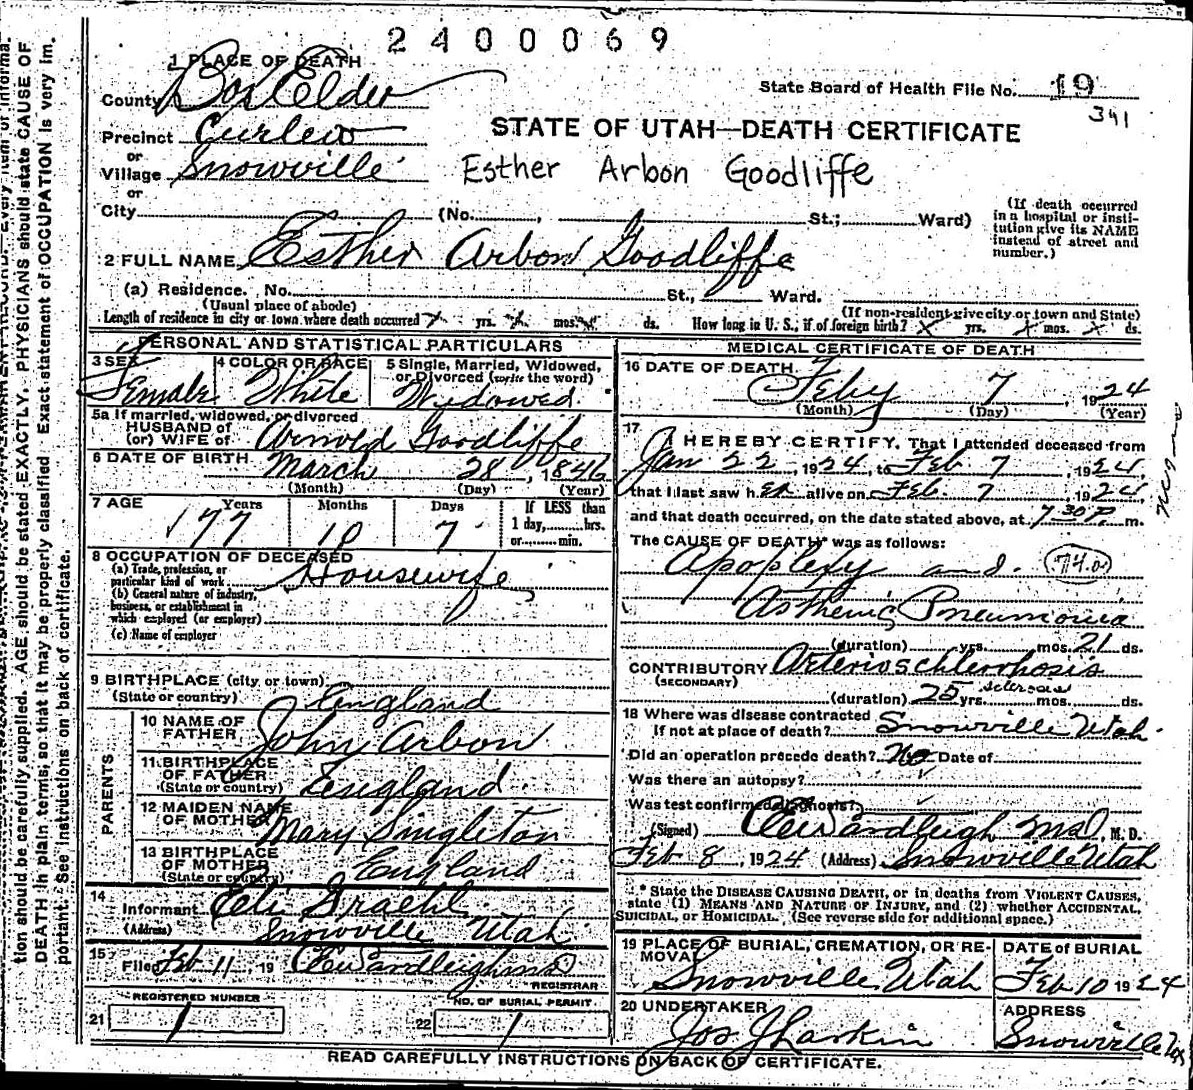 2400069
1 PLACE OF DEATH
County Box Elder
State Board of Health File No. 19
341
Precinct Curlew
STATE OF UTAH—DEATH CERTIFICATE
or
Village Snowville
Esther Arbon Goodliffe
or
City (No. , St.; Ward)
(If death occurred in a hospital or institution give its NAME instead of street and number.)
2 FULL NAME Esther Arbon Goodliffe
(a) Residence. No. St., Ward.
(Usual place of abode)
(If non-resident give city or town and State)
Length of residence in city or town where death occurred x yrs. x mos. x ds. How long in U. S., if of foreign birth? x yrs. x mos. x ds.
PERSONAL AND STATISTICAL PARTICULARS
3 SEX Female
4 COLOR OR RACE White
5 Single, Married, Widowed, or Divorced (write the word) Widowed
5a If married, widowed, or divorced
HUSBAND of
(or) WIFE of Arnold Goodliffe
6 DATE OF BIRTH March 28, 1846
(Month) (Day) (Year)
7 AGE Years Months Days If LESS than
77 10 7 1 day, hrs.
or min.
8 OCCUPATION OF DECEASED
(a) Trade, profession, or
particular kind of work Housewife
(b) General nature of industry,
business, or establishment in
which employed (or employer)
(c) Name of employer
9 BIRTHPLACE (city or town)
(State or country) England
PARENTS
10 NAME OF
FATHER John Arbon
11 BIRTHPLACE
OF FATHER
(State or country) England
12 MAIDEN NAME
OF MOTHER Mary Singleton
13 BIRTHPLACE
OF MOTHER
(State or country) England
14
Informant Eli Graehl
(Address) Snowville Utah
15
Filed Feb 11, 19
REGISTRAR
REGISTERED NUMBER
21 1
NO. OF BURIAL PERMIT
22 1
MEDICAL CERTIFICATE OF DEATH
16 DATE OF DEATH
Feby 7, 1924
(Month) (Day) (Year)
17
I HEREBY CERTIFY, That I attended deceased from
Jan 22, 1924, to Feb 7 1924
that I last saw her alive on Feb. 7 1924,
and that death occurred, on the date stated above, at 7 30 P. m.
The CAUSE OF DEATH* was as follows:
Apoplexy and 74.a
Asthenic Pneumonia
(duration) yrs. mos. 21 ds.
CONTRIBUTORY Arterioschlerrhosis
(SECONDARY)
(duration) 25 yrs. mos. ds.
18 Where was disease contracted
If not at place of death? Snowville Utah.
Did an operation precede death? No Date of
Was there an autopsy?
Was test confirmed diagnosis?
(Signed) M. D.
Feb 8, 1924 (Address) Snowville Utah
* State the DISEASE CAUSING DEATH, or in deaths from VIOLENT CAUSES,
state (1) MEANS AND NATURE OF INJURY, and (2) whether ACCIDENTAL,
SUICIDAL, or HOMICIDAL. (See reverse side for additional space.)
19 PLACE OF BURIAL, CREMATION, OR REMOVAL
Snowville Utah
DATE of BURIAL
Feb 10 1924
20 UNDERTAKER
Jos J Larkin
ADDRESS
Snowville
READ CAREFULLY INSTRUCTIONS ON BACK OF CERTIFICATE.
tion should be carefully supplied. AGE should be stated EXACTLY. PHYSICIANS should state CAUSE OF
DEATH in plain terms, so that it may be properly classified. Exact statement of OCCUPATION is very im-
portant. See instructions on back of certificate.